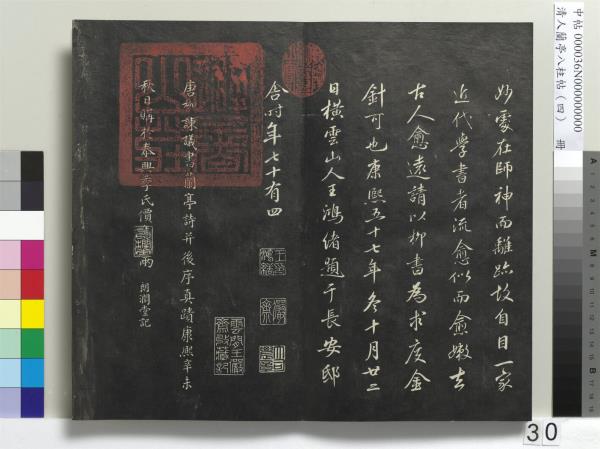 妙處在師神而離跡故自目一家
近代學書者流愈似而愈嫩去
古人愈遠請以柳書為求度金
針可也康熙五十七年冬十月廿二
日橫雲山人王鴻緒題于長安邸
舍時年七十有四
唐柳諫議書蘭亭詩并後序真蹟康熙辛未
秋日購於泰興季氏價
兩
朗潤堂記
中帖 000036N000000000
清人蘭亭八柱帖(四) 冊
30